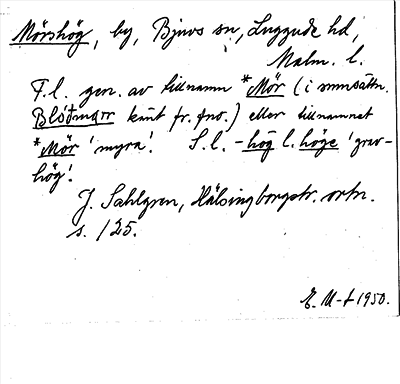 Mörshög, by, Bjuvs sn, Luggude hd,
Malm. l.
F.l. gen. av tillnamn *Mör (i smnsättn.
Blóðmǫrr känt fr. fno.) eller tillnamnet
*Mör 'myra'. S.l. -hög l. höge 'grav-
hög'.
J. Sahlgren, Hälsingborgstr. ortn.
s. 125.
E. U-t 1950.